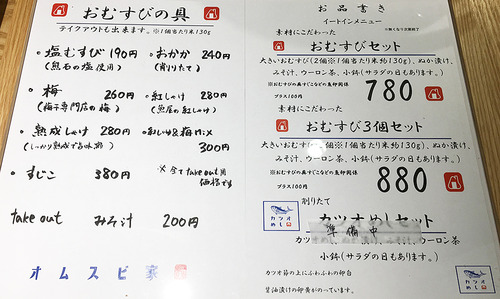 おむすびの具
テイクアウトも出来ます。※1個当たり米130g
・塩むすび 190円
(黒石の塩使用)
・おかか 240円
(削りたて)
・梅 260円
(梅干専門店の梅)
・紅しゃけ 280円
・熟成しゃけ 280円
(じっくり熟成で旨味)
・紅しゃけ&梅mix
300円
・すじこ 380円
※全てtake out用
価格です
take out みそ汁 200円
オムスビ家
お品書き
イートインメニュー
※無くなり次第終了
素材にこだわった
おむすびセット
大きいおむすび(2個※1個当たり米約130g)、ぬか漬け、
みそ汁、ウーロン茶、小鉢(サラダの日もあります。)
プラス100円
780
素材にこだわった
おむすび3個セット
大きいおむすび(※1個当たり米約130g)、ぬか漬け、
みそ汁、ウーロン茶、小鉢(サラダの日もあります。)
プラス100円
880
カツオめし
削りたて
カツオめしセット
準備中
小鉢(サラダの日もあります。)
カツオ節の上にふわふわの卵白
醤油漬けの卵黄がのっています。
カツオめし